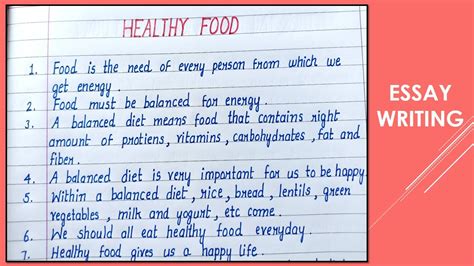 HEALTHY FOOD
1. Food is the need of every person from which we
get energy.
2. Food must be balanced for energy.
3. A balanced diet means food that contains right
amount of protiens, vitamins, carbohydrates, fat and
fiber.
4. A balanced diet is very important for us to be happy.
5. Within a balanced diet, rice, bread, lentils, green
vegetables, milk and yogurt, etc come.
6. We should all eat healthy food everyday.
7. Healthy food gives us a happy life.
ESSAY
WRITING